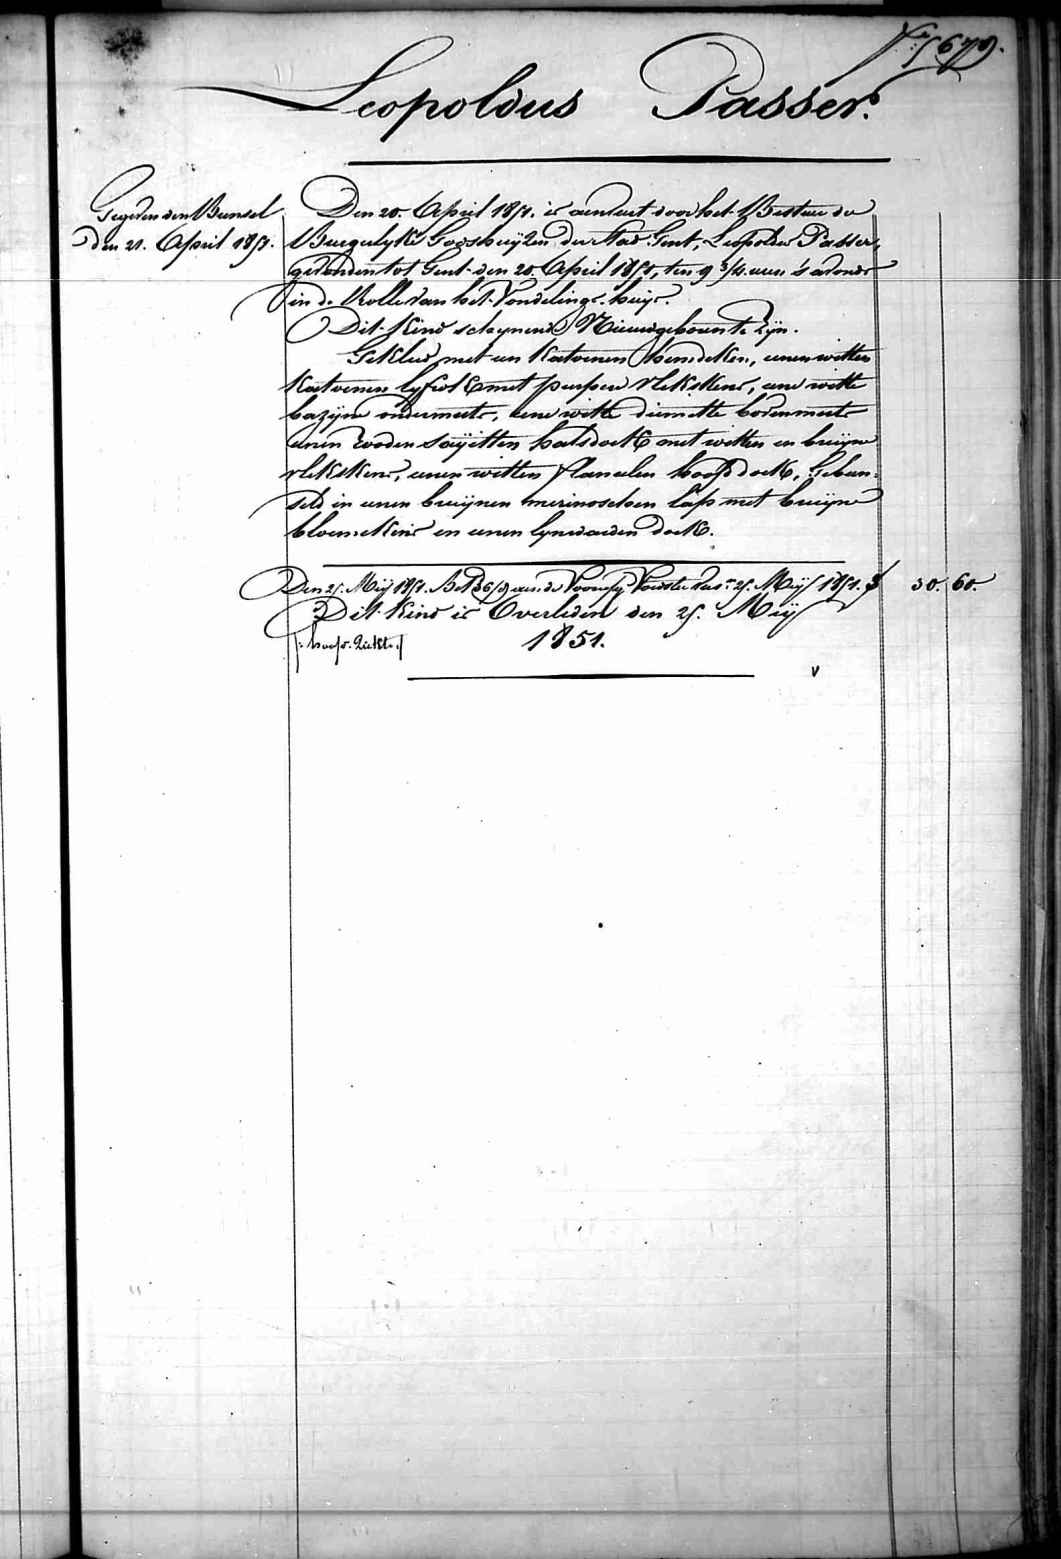 5679.
Leopoldus Passer.
Gegeven den Bunsel
den 21. April 1851.
Den 20. April 1851. is aenveert door het Bestuer der
Burgerlyke Godshuyzen der Stad Gent, Leopoldus Passer,
gevonden tot Gent den 20. April 1851, ten 9 3/4 uren 's avonds
in de Rolle van het Vondelings-huys.
Dit Kind schynende Nieuwgeboren te zyn.
Gekleed met een Katoenen hemdeken, eenen witten
Katoenen lyfrok met purpere vlekskens, eene witte
bazyne ondermuts, eene witte diemette bovenmuts
eenen rooden sayetten halsdoek met witten en bruyne
vlekskens, eenen witten flanelen hoofddoek, Gebun-
seld in eenen bruynen merinoschen lap met bruyne
bloemekens en eenen lynwaeden doek.
Den 25. Mey 1851. Bet. aen de Voedster 25. Mey 1851. f 30. 60.
Dit Kind is Overleden den 25. Mey
1851.